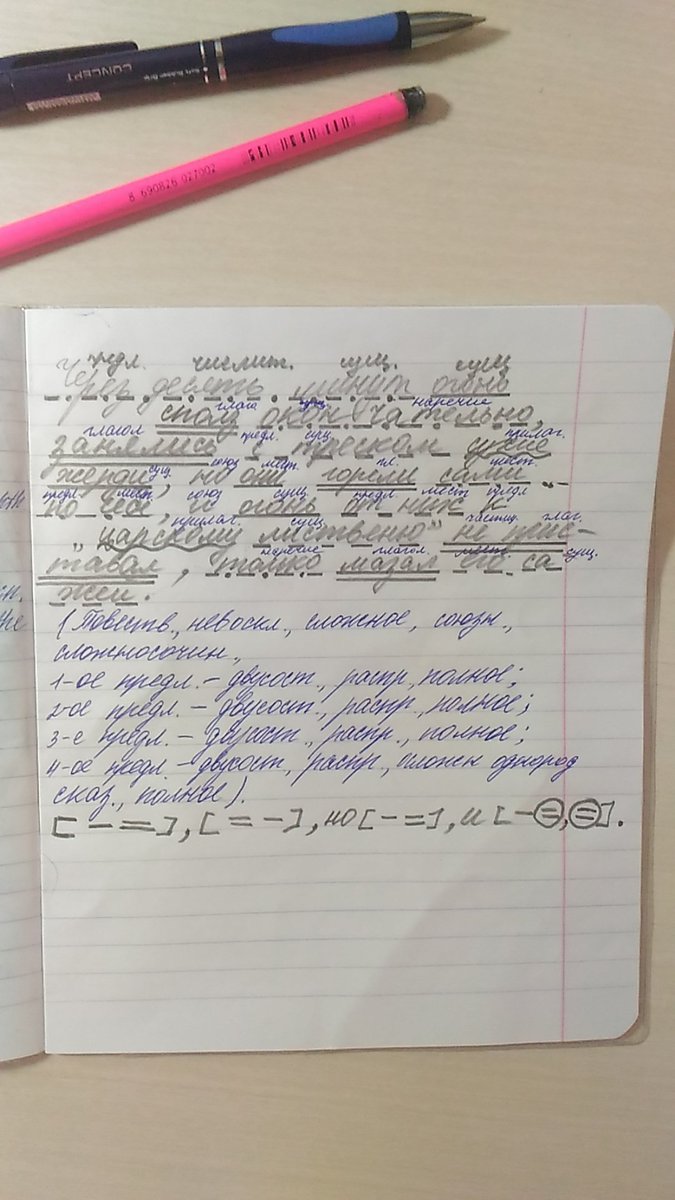 CONCEPT
8 690826 027902
предл. числит. сущ. сущ
Через десять минут огонь
глаг сущ. наречие
спал окончательно,
глагол предл. сущ. прилаг.
занялись с треском сухие
сущ. союз мест. гл. мест.
жерди, но они горели сами –
предл. мест. союз сущ. предл. мест предл
по себе, и огонь от них к
прилаг. сущ. частиц. глаг.
„царскому лиственю" не прис-
наречие глагол. мест. сущ.
тавал, только мазал его са
жей.
(Повеств., невоскл., сложное, союзн.,
сложносочин.,
1-ое предл. – двусост., распр., полное;
2-ое предл. – двусост., распр., полное;
3-е предл. – двусост., распр., полное;
4-ое предл – двусост., распр., осложн однород
сказ., полное).
[ – = ], [ = – ], но [ – = ], и [ – =, = ].